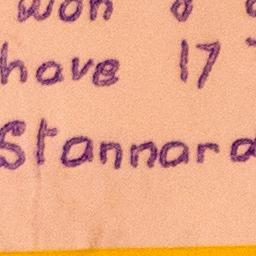 won 8
have 17
Stannard